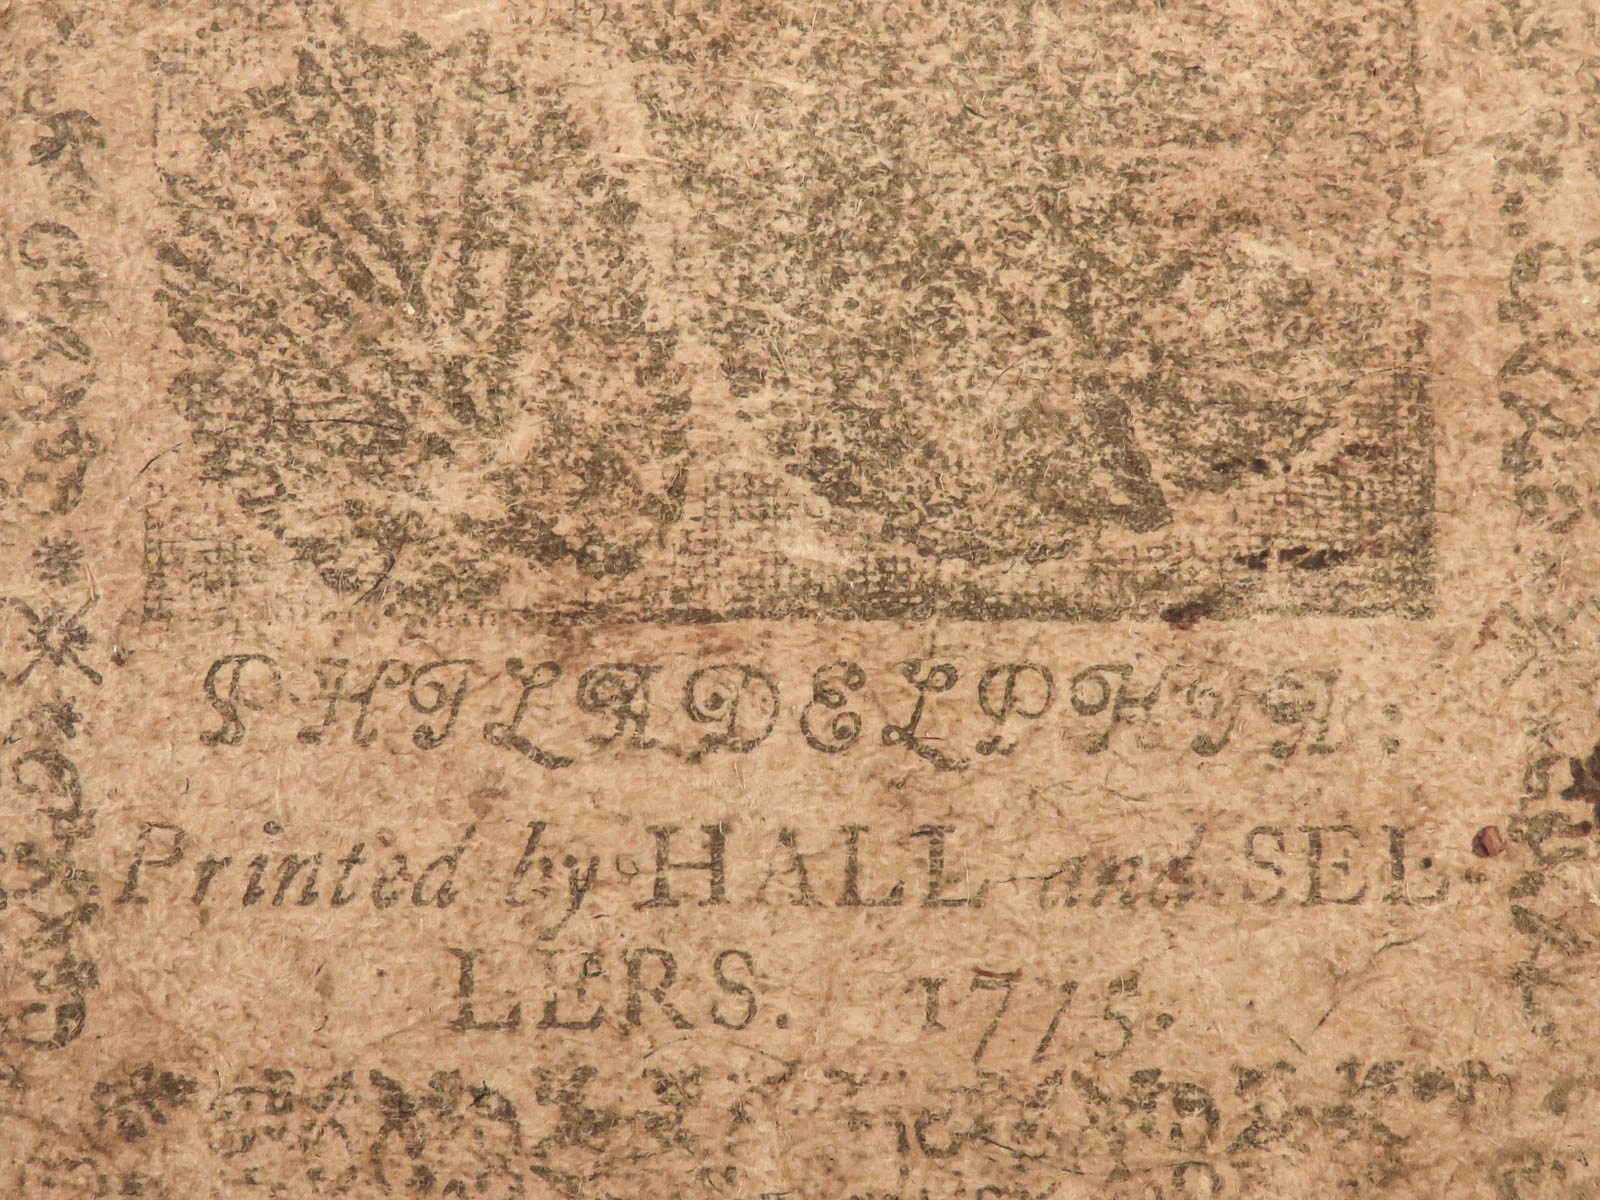 PHILADELPHIA:
Printed by HALL and SEL-
LERS. 1775.